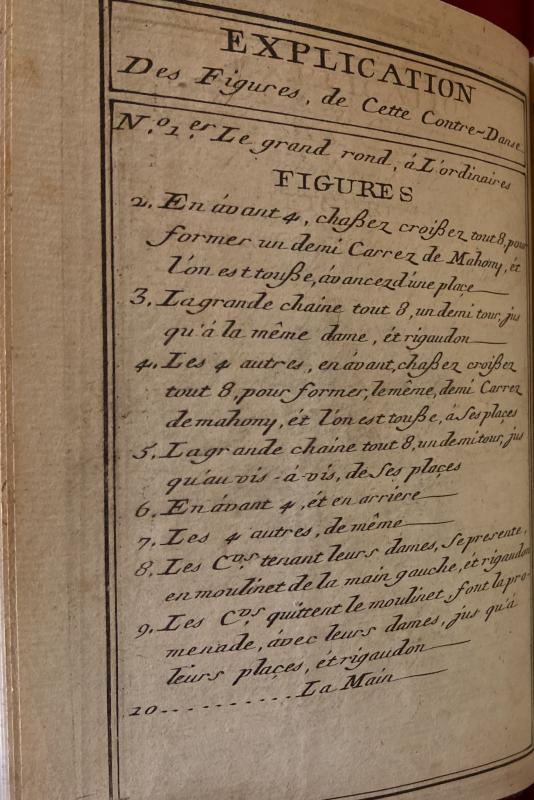 EXPLICATION
Des Figures, de Cette Contre-Danse
N.º 1.er Le grand rond, á L'ordinaires
FIGURES
2. En ávant 4, chaßez croißez tout 8, pour
former un demi Carrez de Mahony, ét
l'on est touße, ávancez d'une place
3. La grande chaine tout 8, un demi tour, jus
qu'á la même dame, ét rigaudon
4. Les 4 autres, en ávant, chaßez croißez
tout 8, pour former, le même, demi Carrez
de mahony, ét l'on est touße, á ses places
5. La grande chaine tout 8, un demi tour, jus
qu'au vis-á-vis, de Ses plaçes
6. En ávant 4, ét en arriere
7. Les 4 autres, de même
8. Les C.vs tenant leurs dames, Se presente,
en moulinet de la main gauche, ét rigaudon
9. Les C.vs quittent le moulinet, font la pro-
menade, ávec leurs dames, jus qu'á
leurs plaçes, ét rigaudon
10.......... La Main